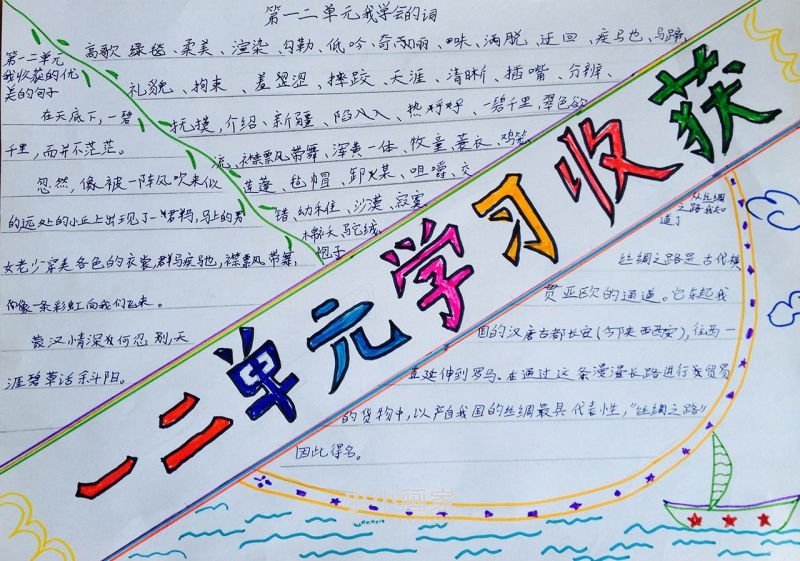 第一二单元我学会的词
高歌、绿毯、柔美、渲染、勾勒、低吟、奇丽、味、洒脱、迂回、疾驰、马蹄、
礼貌、拘束、羞涩、摔跤、天涯、清晰、插嘴、分辨、
抚摸,介绍、新疆、陷入、热乎乎、一碧千里,翠色欲
流、襟飘带舞、浑为一体、牧童、蓑衣、鸡笼
莲蓬、毡帽、卸煤、咀嚼、交
错、幼稚、沙漠、寂寞
棉袄、驼绒、
袍子
第一二单元
我学获的优
美的句子
在天底下,一碧
千里,而并不茫茫。
忽然,像被一阵风吹来似
的远处的小丘上出现了一群马,马上的男
女老少穿美各色的衣裳,群马疾驰,襟飘带舞,
像一条彩虹向我们飞来。
蒙汉情深何忍别,天
涯碧草话斜阳。
一二单元学习收获
从丝绸
之路我知
道了
丝绸之路是古代横
贯亚欧的通道。它东起我
国的汉唐古都长安(今陕西西安),往西一
直延伸到罗马。在通过这条漫漫长路进行贸易
的货物中,以产自我国的丝绸最具代表性,“丝绸之路”
因此得名。
小小画家